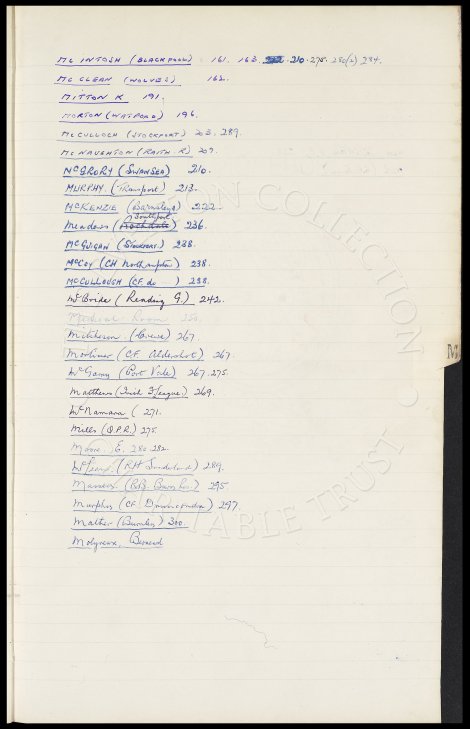 Mc INTOSH (BLACKPOOL) 161. 163. 210. 275. 280(2) 284.
Mc CLEAN (WOLVES) 162.
MITTON K 191.
MORTON (WATFORD) 196.
McCULLOCH (STOCKPORT) 203. 289.
McNAUGHTON (RAITH R) 207.
McGRORY (SWANSEA) 210.
MURPHY (Transport) 213.
McKENZIE (Barnsley) 222.
Meadows (Rochdale) Southport 236.
McGUIGAN (Stockport) 238.
McCOY (CH Northampton) 238.
McCULLOUGH (CF. do ) 238.
McBride (Reading G.) 242.
Medical Room 250.
Mitcheson (Crewe) 267
Mortimer (CF. Aldershot) 267.
McGarry (Port Vale) 267. 275.
Matthews (Irish F League) 269.
McNamara ( 271.
Mills (Q.P.R.) 275.
Moore E. 280. 282.
(RH Sunderland) 289.
295
Murphy (CF. 297.
Mather (Burnley) 300.
Molyneux, Bernard
M
COLLECTION
TABLE TRUST